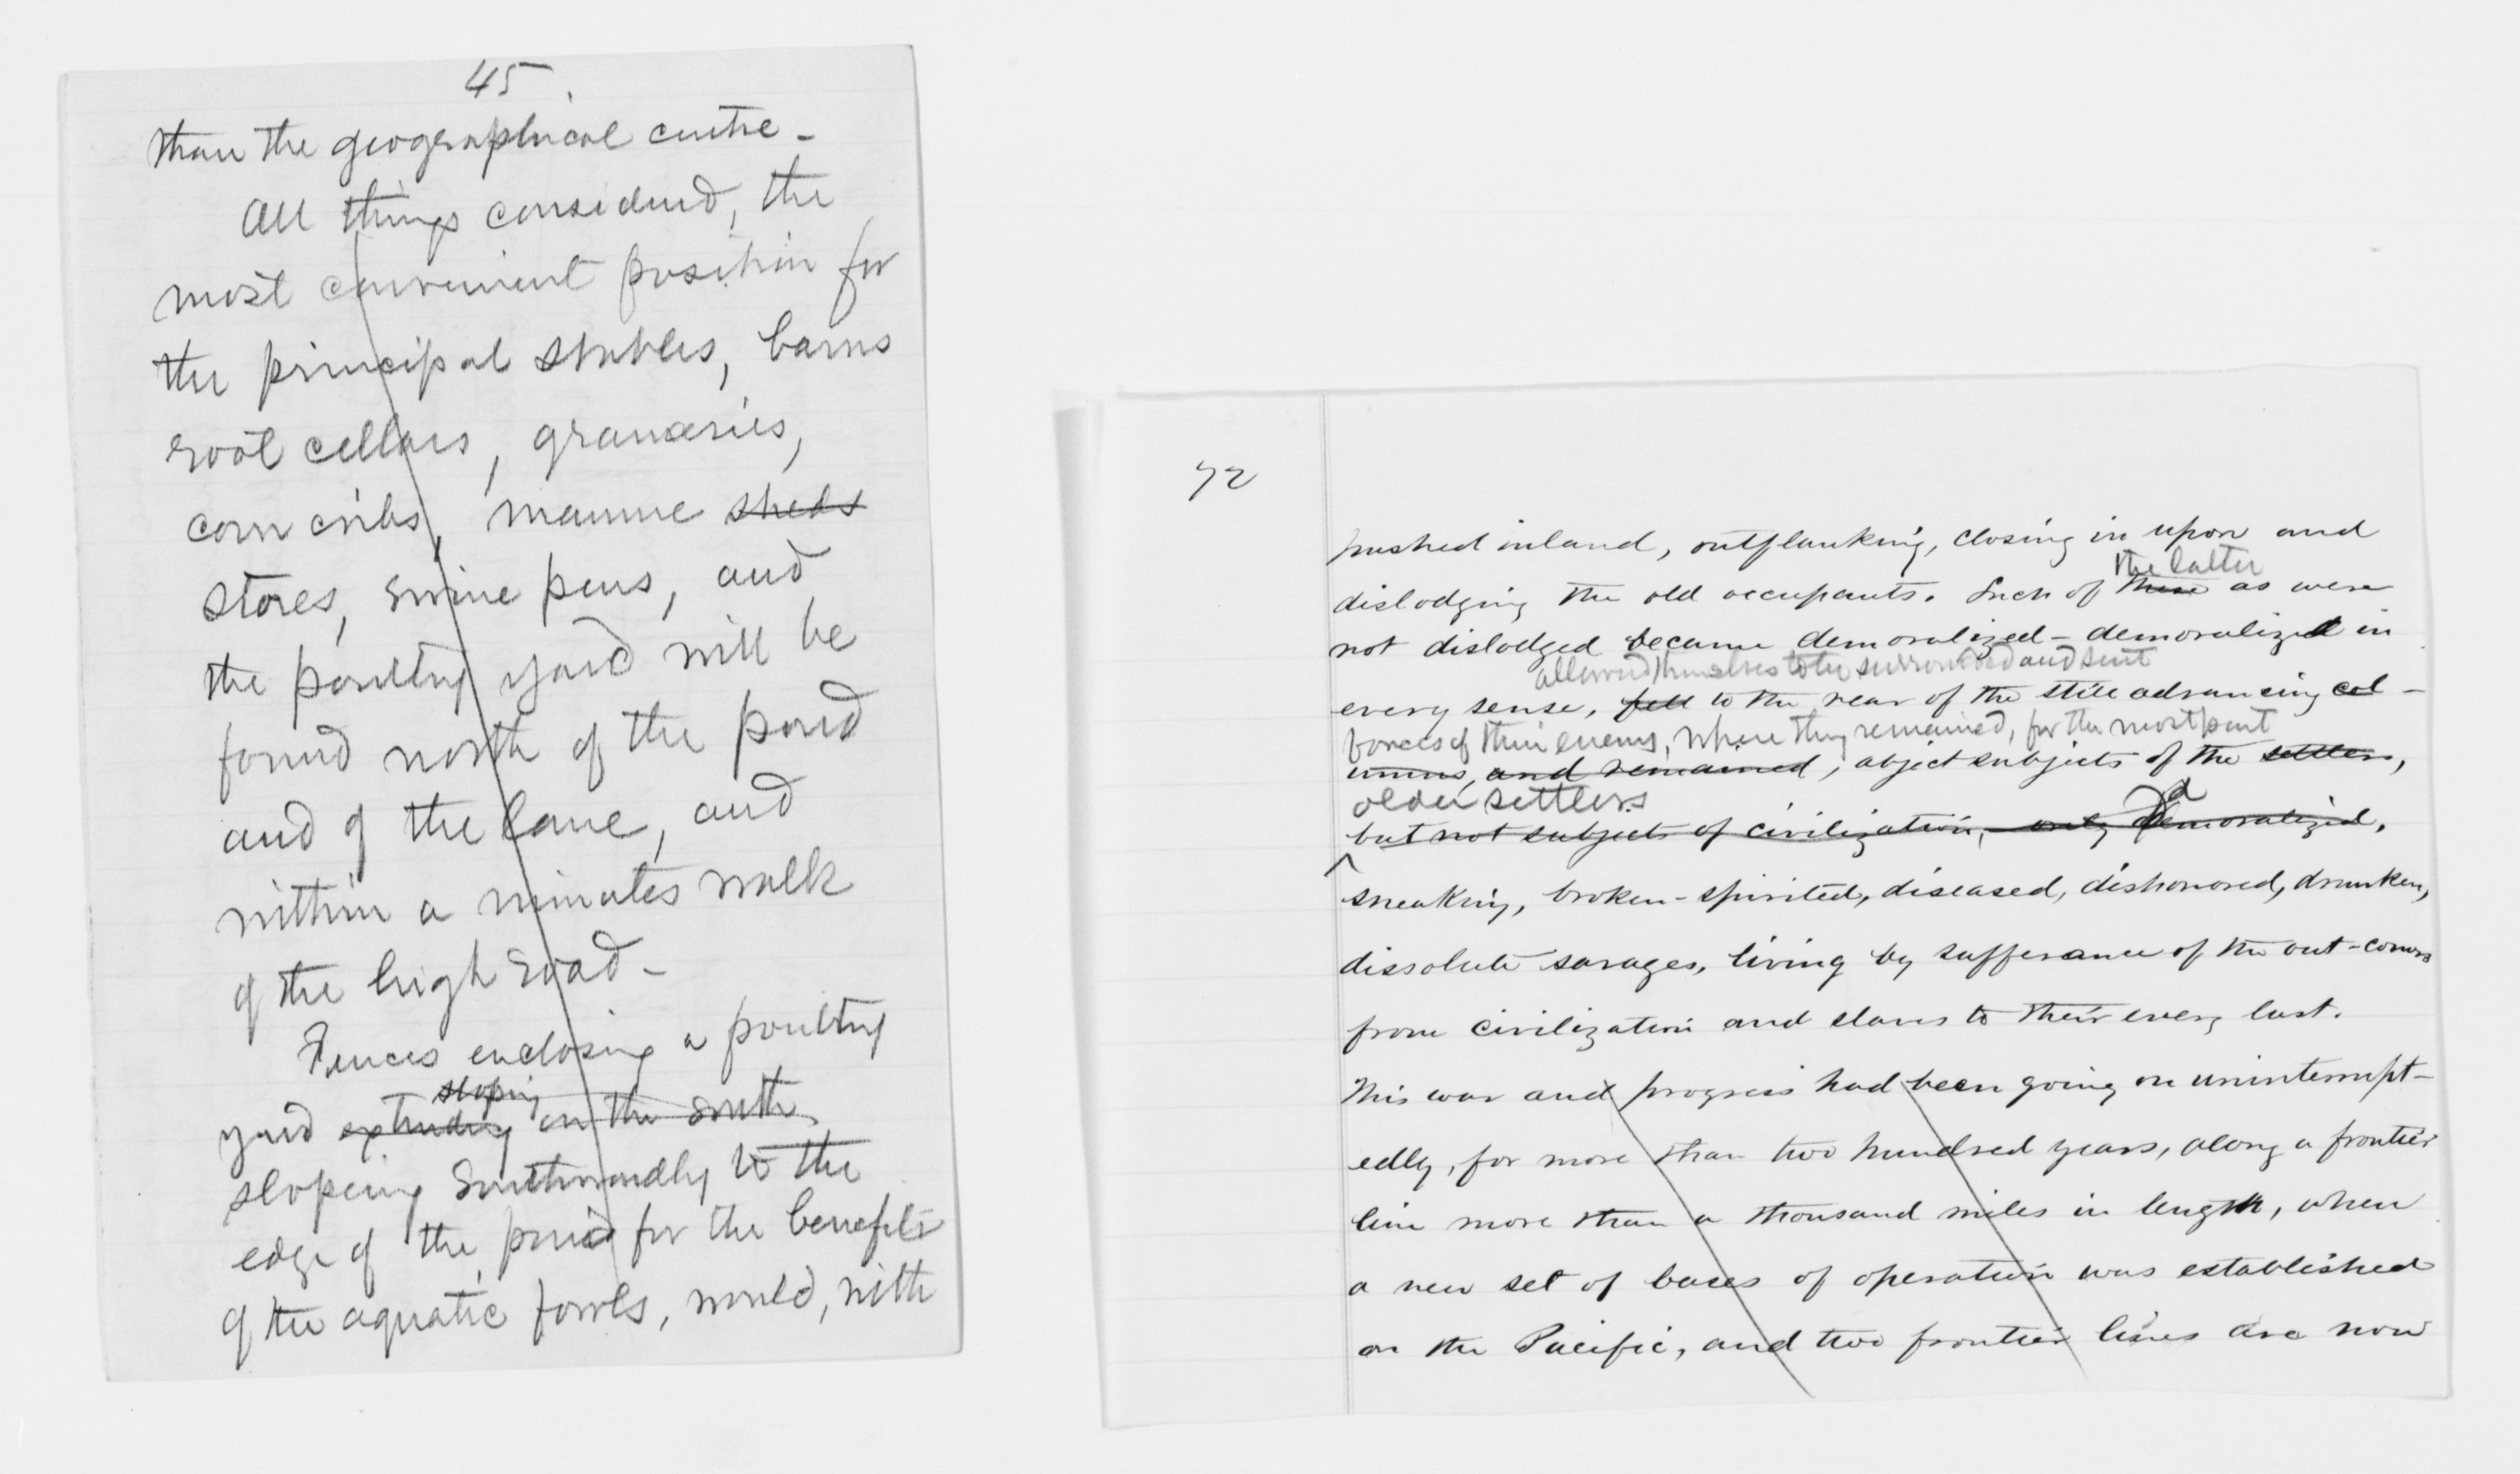 45
than the geographical centre -
All things considered, the
most convenient position for
the principal stables, barns
root cellars, granaries,
corn cribs, manure sheds
stores, swine pens, and
the poultry yard will be
found north of the pond
and of the lane, and
within a minutes walk
of the high road -
Fences enclosing a poultry
sloping
yard extending on the south
sloping southwardly to the
edge of the pond for the benefit
of the aquatic fowls, would, with
72
pushed inland, outflanking, closing in upon and
the latter
dislodging the old occupants. Such of these as were
not dislodged became demoralized - demoralized in
allowed themselves to be surrounded and sent
every sense, fell to the rear of the still advancing col-
forces of their enemy, where they remained, for the most part
umns, and remained, abject subjects of the settlers,
older settlers.
but not subjects of civilization, - only demoralized,
sneaking, broken-spirited, diseased, dishonored, drunken,
dissolute savages, living by sufferance of the out-comers
from civilization and slaves to their every lust.
This war and progress had been going on uninterrupt-
edly, for more than two hundred years, along a frontier
line more than a thousand miles in length, when
a new set of bases of operation was established
on the Pacific, and two frontier lines are now